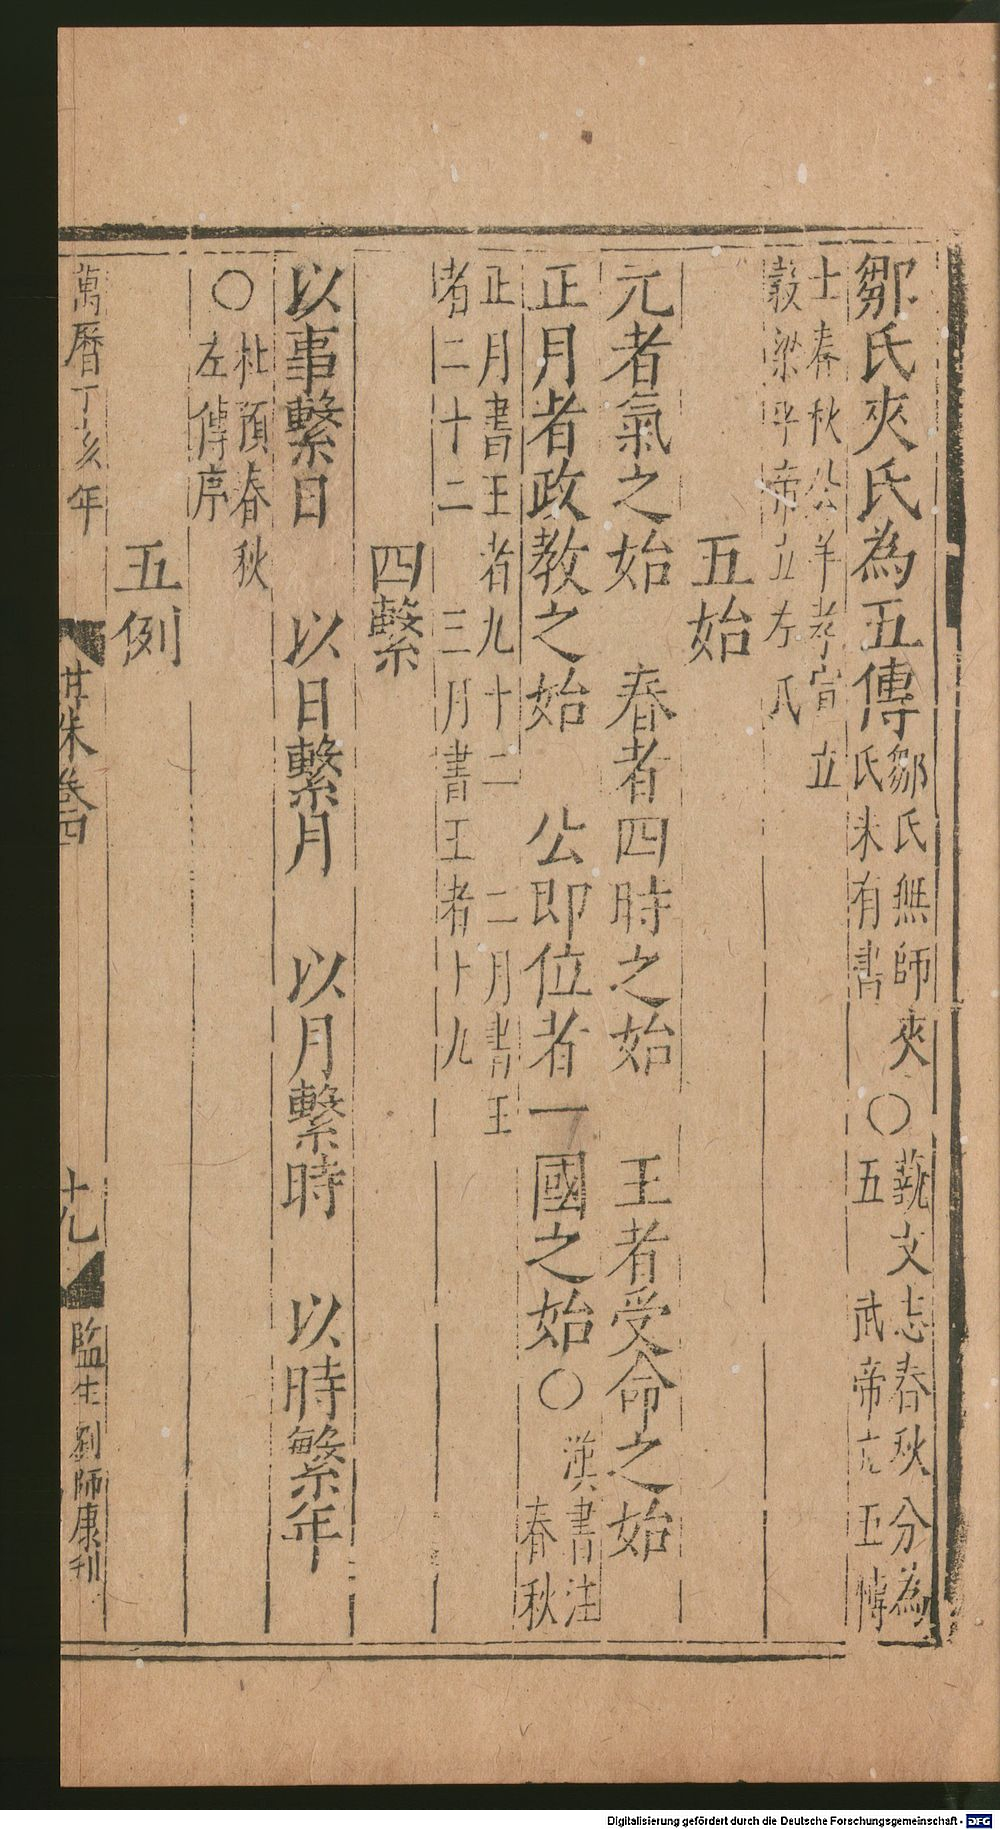 鄒氏夾氏為五傳鄒氏無師夾氏未有書○藝文志春秋分為五武帝立五博
士春秋公羊孝宣立穀梁平帝立左氏
五始
元者氣之始 春者四時之始 王者受命之始
正月者政教之始 公即位者一國之始○漢書注春秋
正月書王者九十二 二月書王者二十二 三月書王者十九
四繫
以事繫日 以日繫月 以月繫時 以時繫年
○杜預春秋左傳序
五例
萬曆丁亥年 卷四 十九 監生劉師康刊
Digitalisierung gefördert durch die Deutsche Forschungsgemeinschaft - DFG